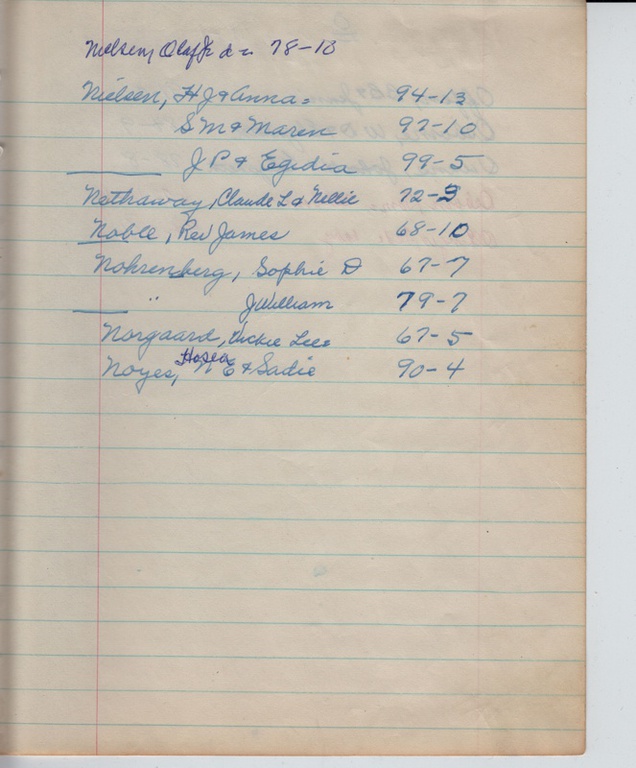 Nielsen, Olaf Jr 78-13
Nielsen, H J & Anna 94-13
S M & Maren 97-10
J P & Egidia 99-5
Nethaway, Claude L & Nellie 72-3
Noble, Rev James 68-10
Nohrenberg, Sophie D 67-7
" J William 79-7
Norgaard, Vickie Lee 67-5
Hosea
Noyes, N E & Sadie 90-4